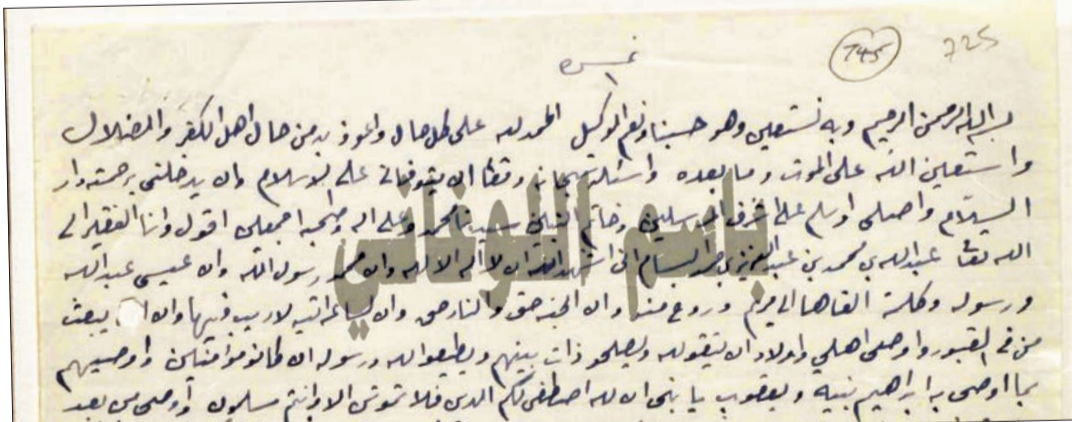 745 725
بسم الله الرحمن الرحيم وبه نستعين وهو حسبنا ونعم الوكيل الحمد لله على كل حال واعوذ به من حال اهل الكفر والضلال
واستعين الله على الموت وما بعده واسئله سبحانه وتعا ان يتوفاني على الاسلام وان يدخلني برحمته دار
السلام واصلي اوسلم على اشرف المرسلين وخاتم النبين سيدنا محمد وعلى اله وصحبه اجمعين اقول وانا الفقير الى
الله تعا عبدالله بن محمد بن عبدالعزيز بن حمد البسام اني اشهد ان لا اله الا الله وان محمد رسول الله وان عيسى عبدالله
ورسوله وكلمته القاها الى مريم وروح منه وان الجنه حق والنار حق وان الساعه اتيه لاريب فيها وان يبعث
من في القبور واوصي اهلي واولاد ان يتقو لله ويصلحو ذات بينهم ويطيعو الله ورسوله ان كانو مؤمنين واوصيهم
بما اوصى به ابراهيم بنيه ويعقوب يا بني ان لله اصطفى لكم الدين فلا تموتن الا وانتم مسلمون واوصي من بعد
باسم اللوغاني